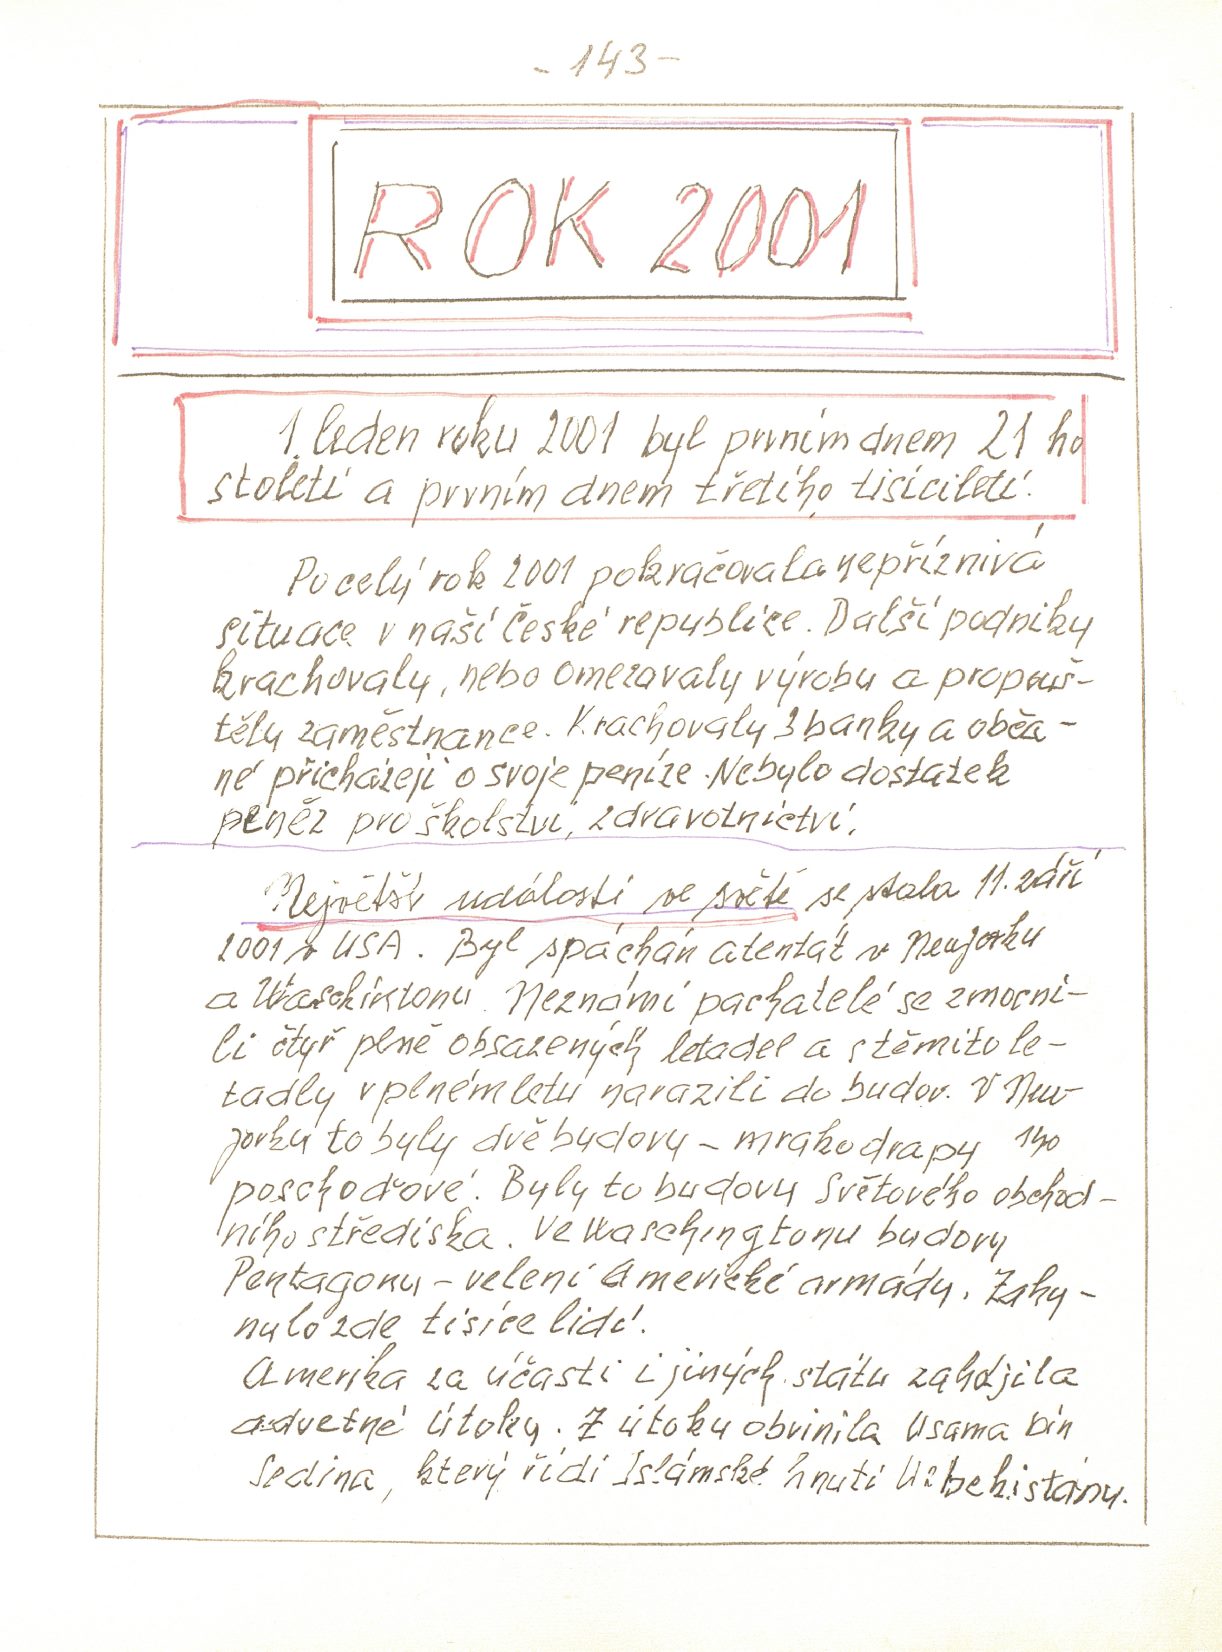 - 143 -
ROK 2001
1. leden roku 2001 byl prvním dnem 21 ho
století a prvním dnem třetího tisíciletí.
Po celý rok 2001 pokračovala nepříznivá
situace v naší České republice. Další podniky
krachovaly, nebo omezovaly výrobu a propouš-
těly zaměstnance. Krachovaly 3 banky a obča-
né přicházejí o svoje peníze. Nebylo dostatek
peněz pro školství, zdravotnictví.
Největší událostí ve světě se stala 11. září
2001 v USA. Byl spáchán atentát v Newjorku
a Waschinktonu. Neznámí pachatelé se zmocni-
li čtyř plně obsazených letadel a s těmito le-
tadly v plném letu narazili do budov. V New-
jorku to byly dvě budovy - mrakodrapy 140
poschoďové. Byly to budovy Světového obchod-
ního střediska. Ve Waschingtonu budovy
Pentagonu - velení Americké armády. Zahy-
nulo zde tisíce lidí.
Amerika za účasti i jiných státu zahájila
odvetné útoky. Z útoku obvinila Usama bin
Ledina, který řídí Islámské hnutí Uzbekistánu.